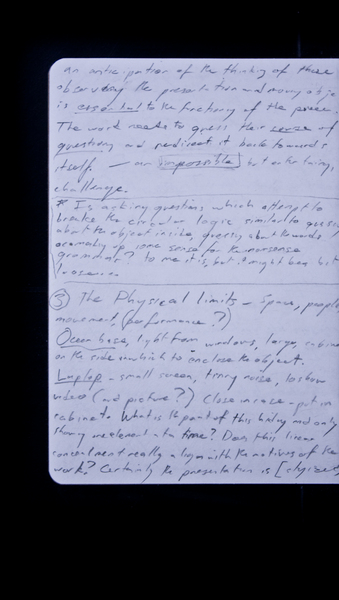 an anticipation of the thinking of those
observing the presentation and many
is essential to the functioning of the piece.
The work needs to guess their sense of
questions and redirect it back towards
itself. — an [impossible] but entertaining
challenge.
* Is asking questions which attempt to
breake the circular logic similar to
about the object inside,
up some sense for the nonsense
grammar? to me it is, but it might be a bit
③ The Physical limits – Space, people
movement, (performance?)
base, light from windows, large, cabinet
on the side in which to inclose the object.
Laptop – small screen, tinny noise, to show
video (and picture?) Close in case – put in
cabinet. What is the point of this hiding and only
showing one element at a time? Does this linear
concealment really align with the motives of the
work? Certainly the presentation is [stylized,